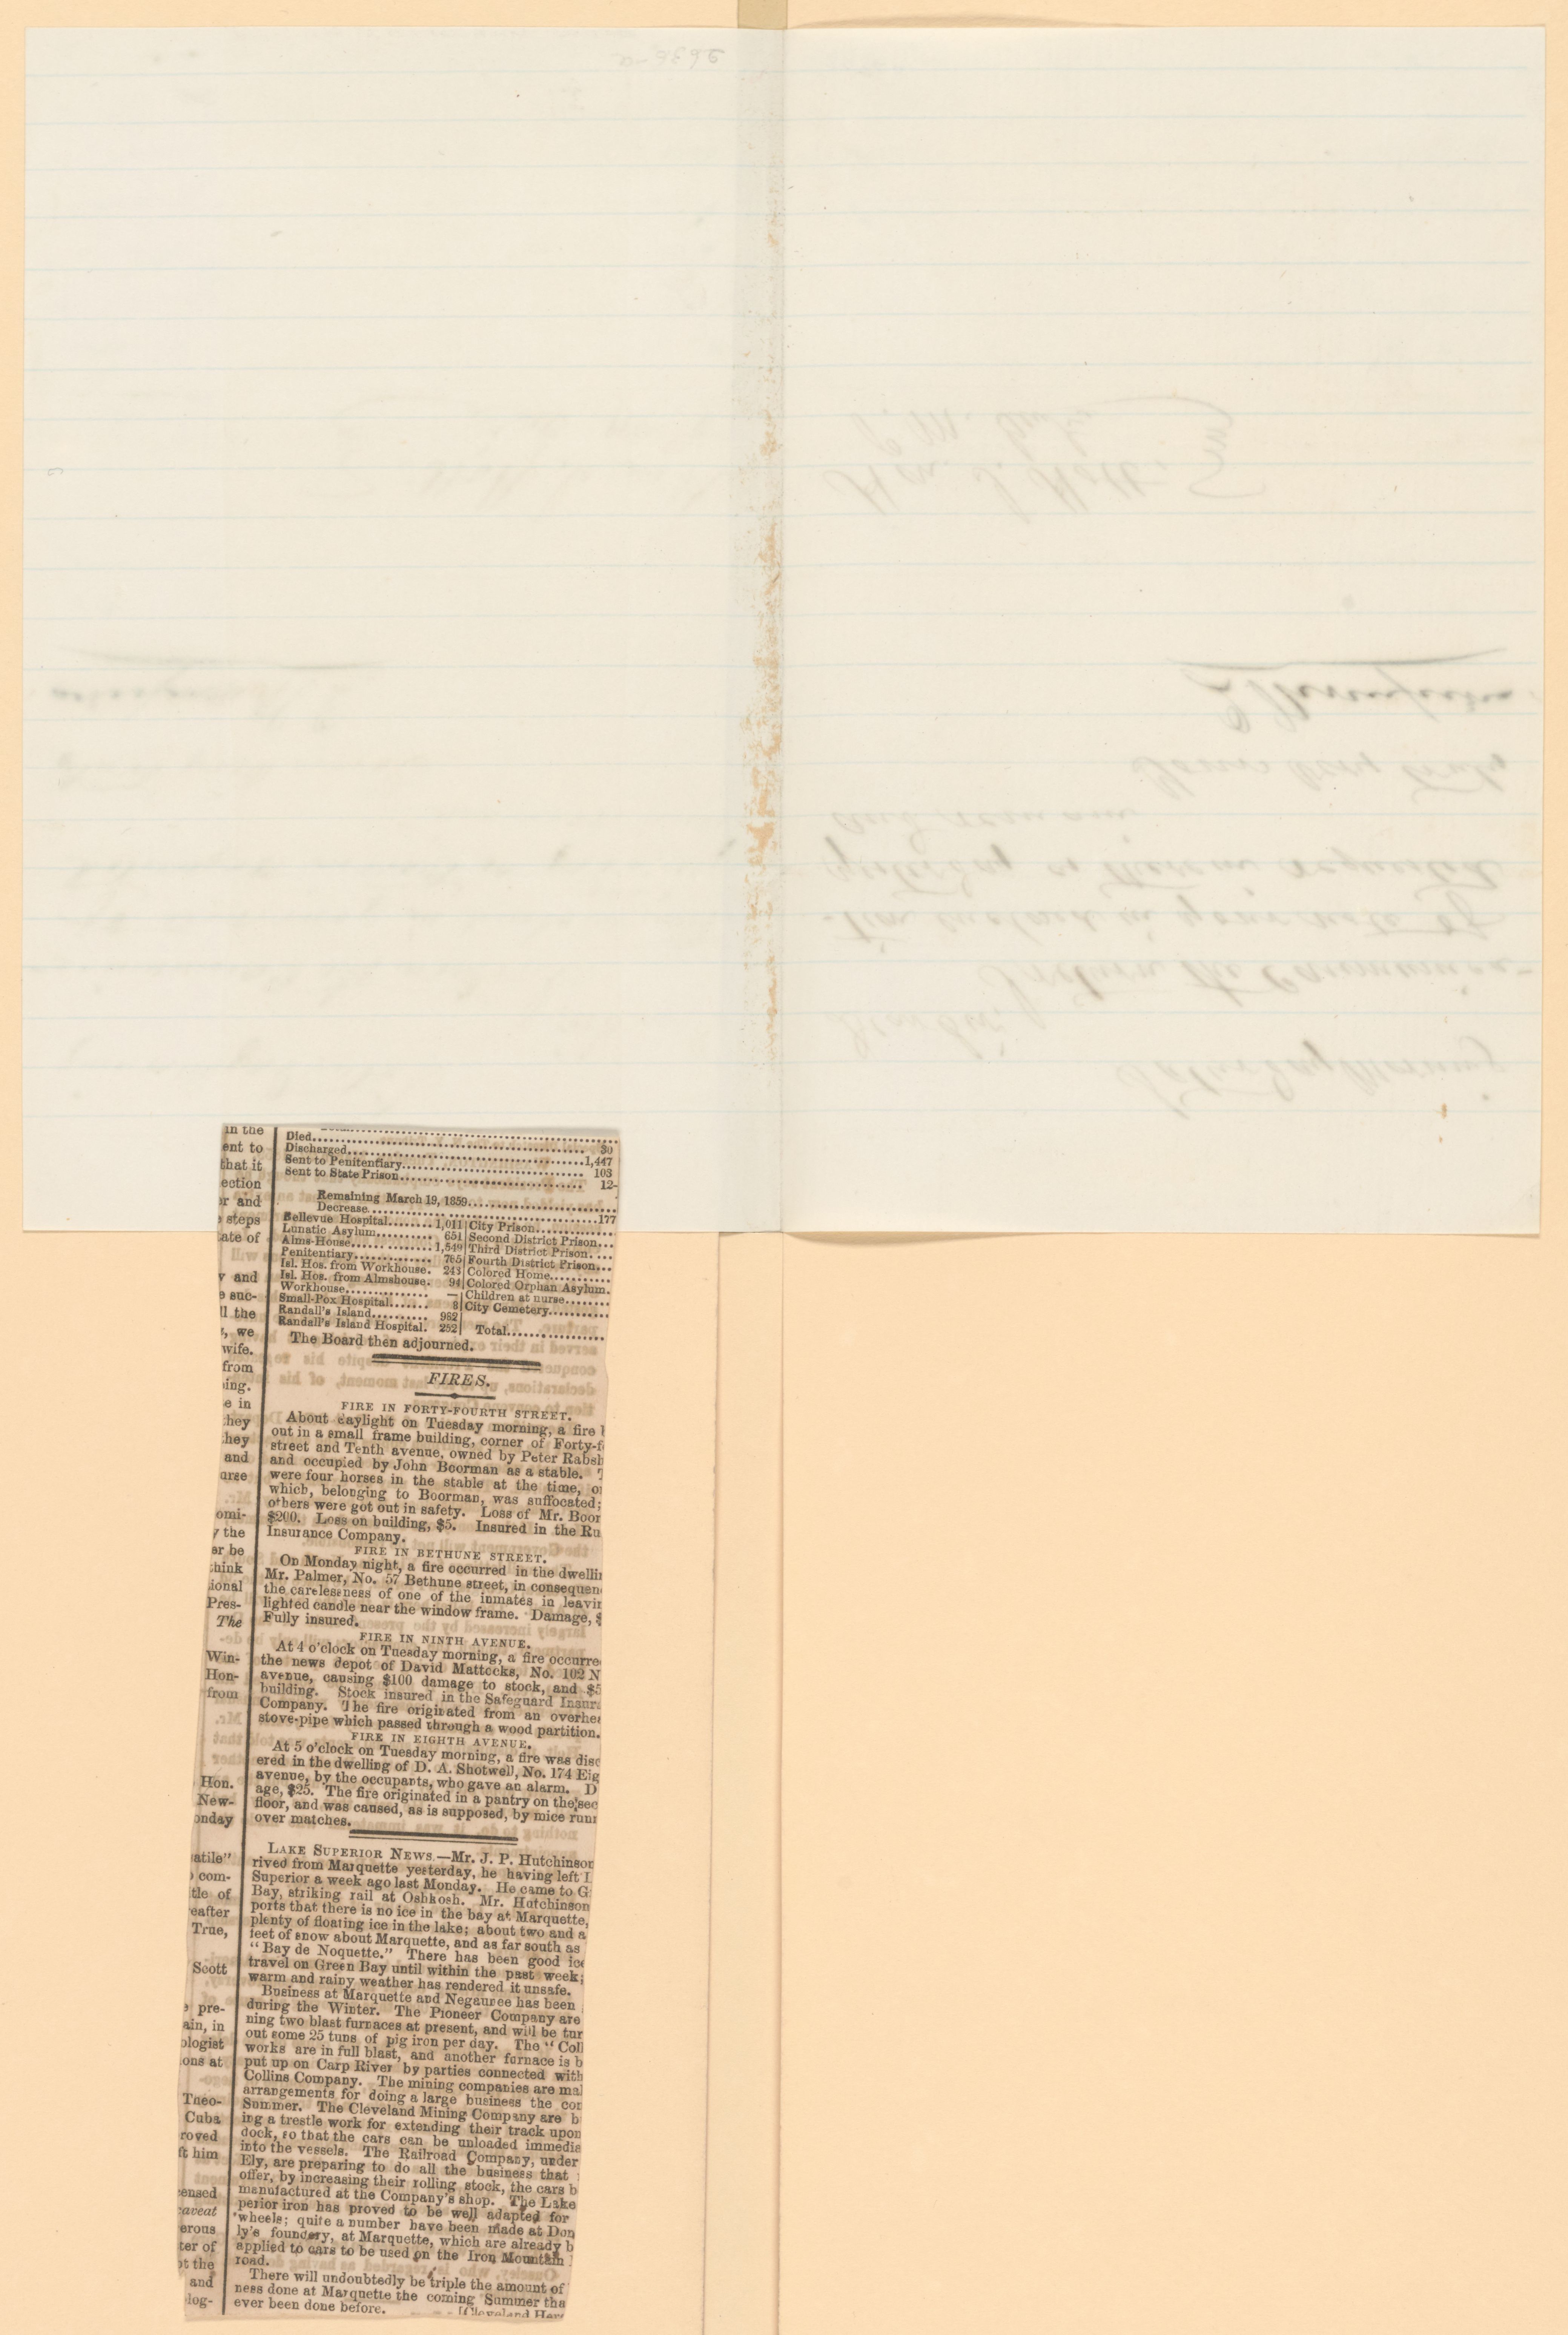 in the
ent to
that it
ection
r and
steps
ate of
y and
suc-
ll the
, we
wife.
from
ing.
e in
they
they
and
urse
omi-
the
er be
think
ional
Pres-
The
Win-
Hon-
from
Hon.
New-
onday
atile"
com-
tle of
eafter
True,
Scott
pre-
ain, in
ologist
ons at
Theo-
Cuba
roved
ft him
ensed
caveat
erous
ter of
ot the
and
log-
Died........ 30
Discharged........1,447
Sent to Penitentiary........ 103
Sent to State Prison........ 12-
Remaining March 19, 1859........
Decrease........177
Bellevue Hospital........1,011 City Prison........
Lunatic Asylum........ 651 Second District Prison...
Alms-House........1,549 Third District Prison....
Penitentiary........ 765 Fourth District Prison...
Isl. Hos. from Workhouse. 243 Colored Home........
Isl. Hos. from Almshouse. 94 Colored Orphan Asylum.
Workhouse........ — Children at nurse........
Small-Pox Hospital....... 8 City Cemetery........
Randall's Island........ 982
Randall's Island Hospital. 252 Total........
The Board then adjourned.
FIRES.
FIRE IN FORTY-FOURTH STREET.
About daylight on Tuesday morning, a fire b
out in a small frame building, corner of Forty-f
street and Tenth avenue, owned by Peter Rabsh
and occupied by John Boorman as a stable. T
were four horses in the stable at the time, o
which, belonging to Boorman, was suffocated;
others were got out in safety. Loss of Mr. Boor
$200. Loss on building, $5. Insured in the Ru
Insurance Company.
FIRE IN BETHUNE STREET.
On Monday night, a fire occurred in the dwelli
Mr. Palmer, No. 57 Bethune street, in consequen
the carelessness of one of the inmates in leavin
lighted candle near the window frame. Damage, $
Fully insured.
FIRE IN NINTH AVENUE.
At 4 o'clock on Tuesday morning, a fire occurre
the news depot of David Mattocks, No. 102 N
avenue, causing $100 damage to stock, and $5
building. Stock insured in the Safeguard Insura
Company. The fire originated from an overhea
stove-pipe which passed through a wood partition.
FIRE IN EIGHTH AVENUE.
At 5 o'clock on Tuesday morning, a fire was disc
ered in the dwelling of D. A. Shotwell, No. 174 Eig
avenue, by the occupants, who gave an alarm. D
age, $25. The fire originated in a pantry on the sec
floor, and was caused, as is supposed, by mice runn
over matches.
LAKE SUPERIOR NEWS.—Mr. J. P. Hutchinson
rived from Marquette yesterday, he having left L
Superior a week ago last Monday. He came to G
Bay, striking rail at Oshkosh. Mr. Hutchinson
ports that there is no ice in the bay at Marquette,
plenty of floating ice in the lake; about two and a
feet of snow about Marquette, and as far south as
"Bay de Noquette." There has been good ice
travel on Green Bay until within the past week;
warm and rainy weather has rendered it unsafe.
Business at Marquette and Negaunee has been
during the Winter. The Pioneer Company are
ning two blast furnaces at present, and will be tur
out some 25 tuns of pig iron per day. The "Coll
works are in full blast, and another furnace is b
put up on Carp River by parties connected with
Collins Company. The mining companies are mak
arrangements for doing a large business the com
Summer. The Cleveland Mining Company are b
ing a trestle work for extending their track upon
dock, so that the cars can be unloaded immedia
into the vessels. The Railroad Company, under
Ely, are preparing to do all the business that
offer, by increasing their rolling stock, the cars b
manufactured at the Company's shop. The Lake
perior iron has proved to be well adapted for
wheels; quite a number have been made at Don
ly's foundery, at Marquette, which are already b
applied to cars to be used on the Iron Mountain
road.
There will undoubtedly be triple the amount of
ness done at Marquette the coming Summer tha
ever been done before. [Cleveland Her